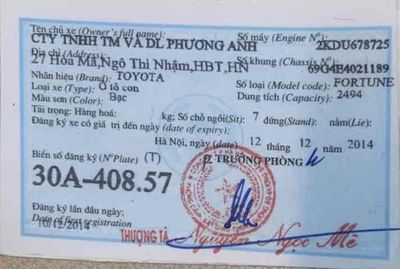 Tên chủ xe (Owner's full name): Số máy (Engine N°):
CTY TNHH TM VÀ DL PHƯƠNG ANH 2KDU678725
Địa chỉ (Address): Số khung (Chassis N°):
27 Hòa Mã,Ngô Thì Nhậm,HBT,HN 69G4E4021189
Nhãn hiệu (Brand): TOYOTA Số loại (Model code): FORTUNE
Loại xe (Type): Ô tô con Dung tích (Capacity): 2494
Màu sơn (Color): Bạc
Tải trọng: Hàng hoá: kg; Số chỗ ngồi(Sit): 7 đứng(Stand): nằm(Lie):
Đăng ký xe có giá trị đến ngày (date of expiry):
Hà Nội, ngày (date) 12 12 năm 2014
Biển số đăng ký (N°Plate) (T) P. TRƯỞNG PHÒNG
30A-408.57
Đăng ký lần đầu ngày:
Date of first registration
10/12/2014
THƯỢNG TÁ Nguyễn Ngọc Mê